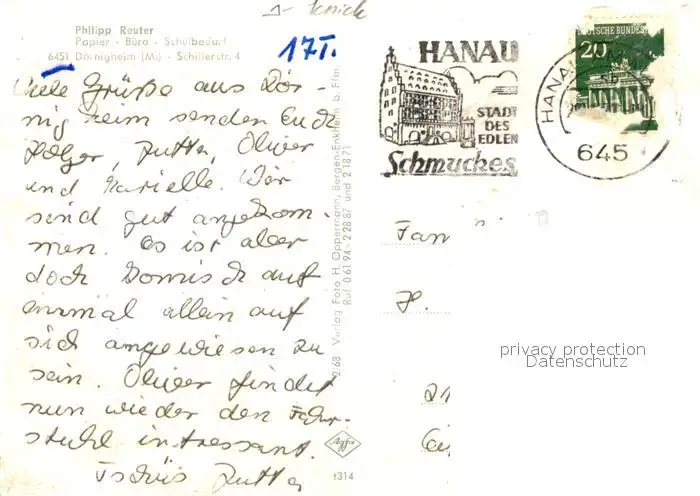 Δ- Knick
Philipp Reuter
Papier - Büro - Schulbedarf
6451 Dörnigheim (M.) - Schillerstr. 4
17I.
Viele Grüße aus Dör-
nigheim senden Euch
Holger, Jutta, Oliver
und Marielle. Wir
sind gut angekom-
men. Es ist aber
doch komisch auf
einmal allein auf
sich angewiesen zu
sein. Oliver findet
nun wieder den Fahr-
stuhl intressant.
Tschüs Jutta
2/68 Verlag Foto H. Oppermann, Bergen-Enkheim b. Ffm.
Ruf 06194-22887 und 21871
Agfa
t314
HANAU
STADT
DES
EDLEN
Schmuckes
HANAU
645
DEUTSCHE BUNDES
20
Fam
H.
21
privacy protection
Datenschutz